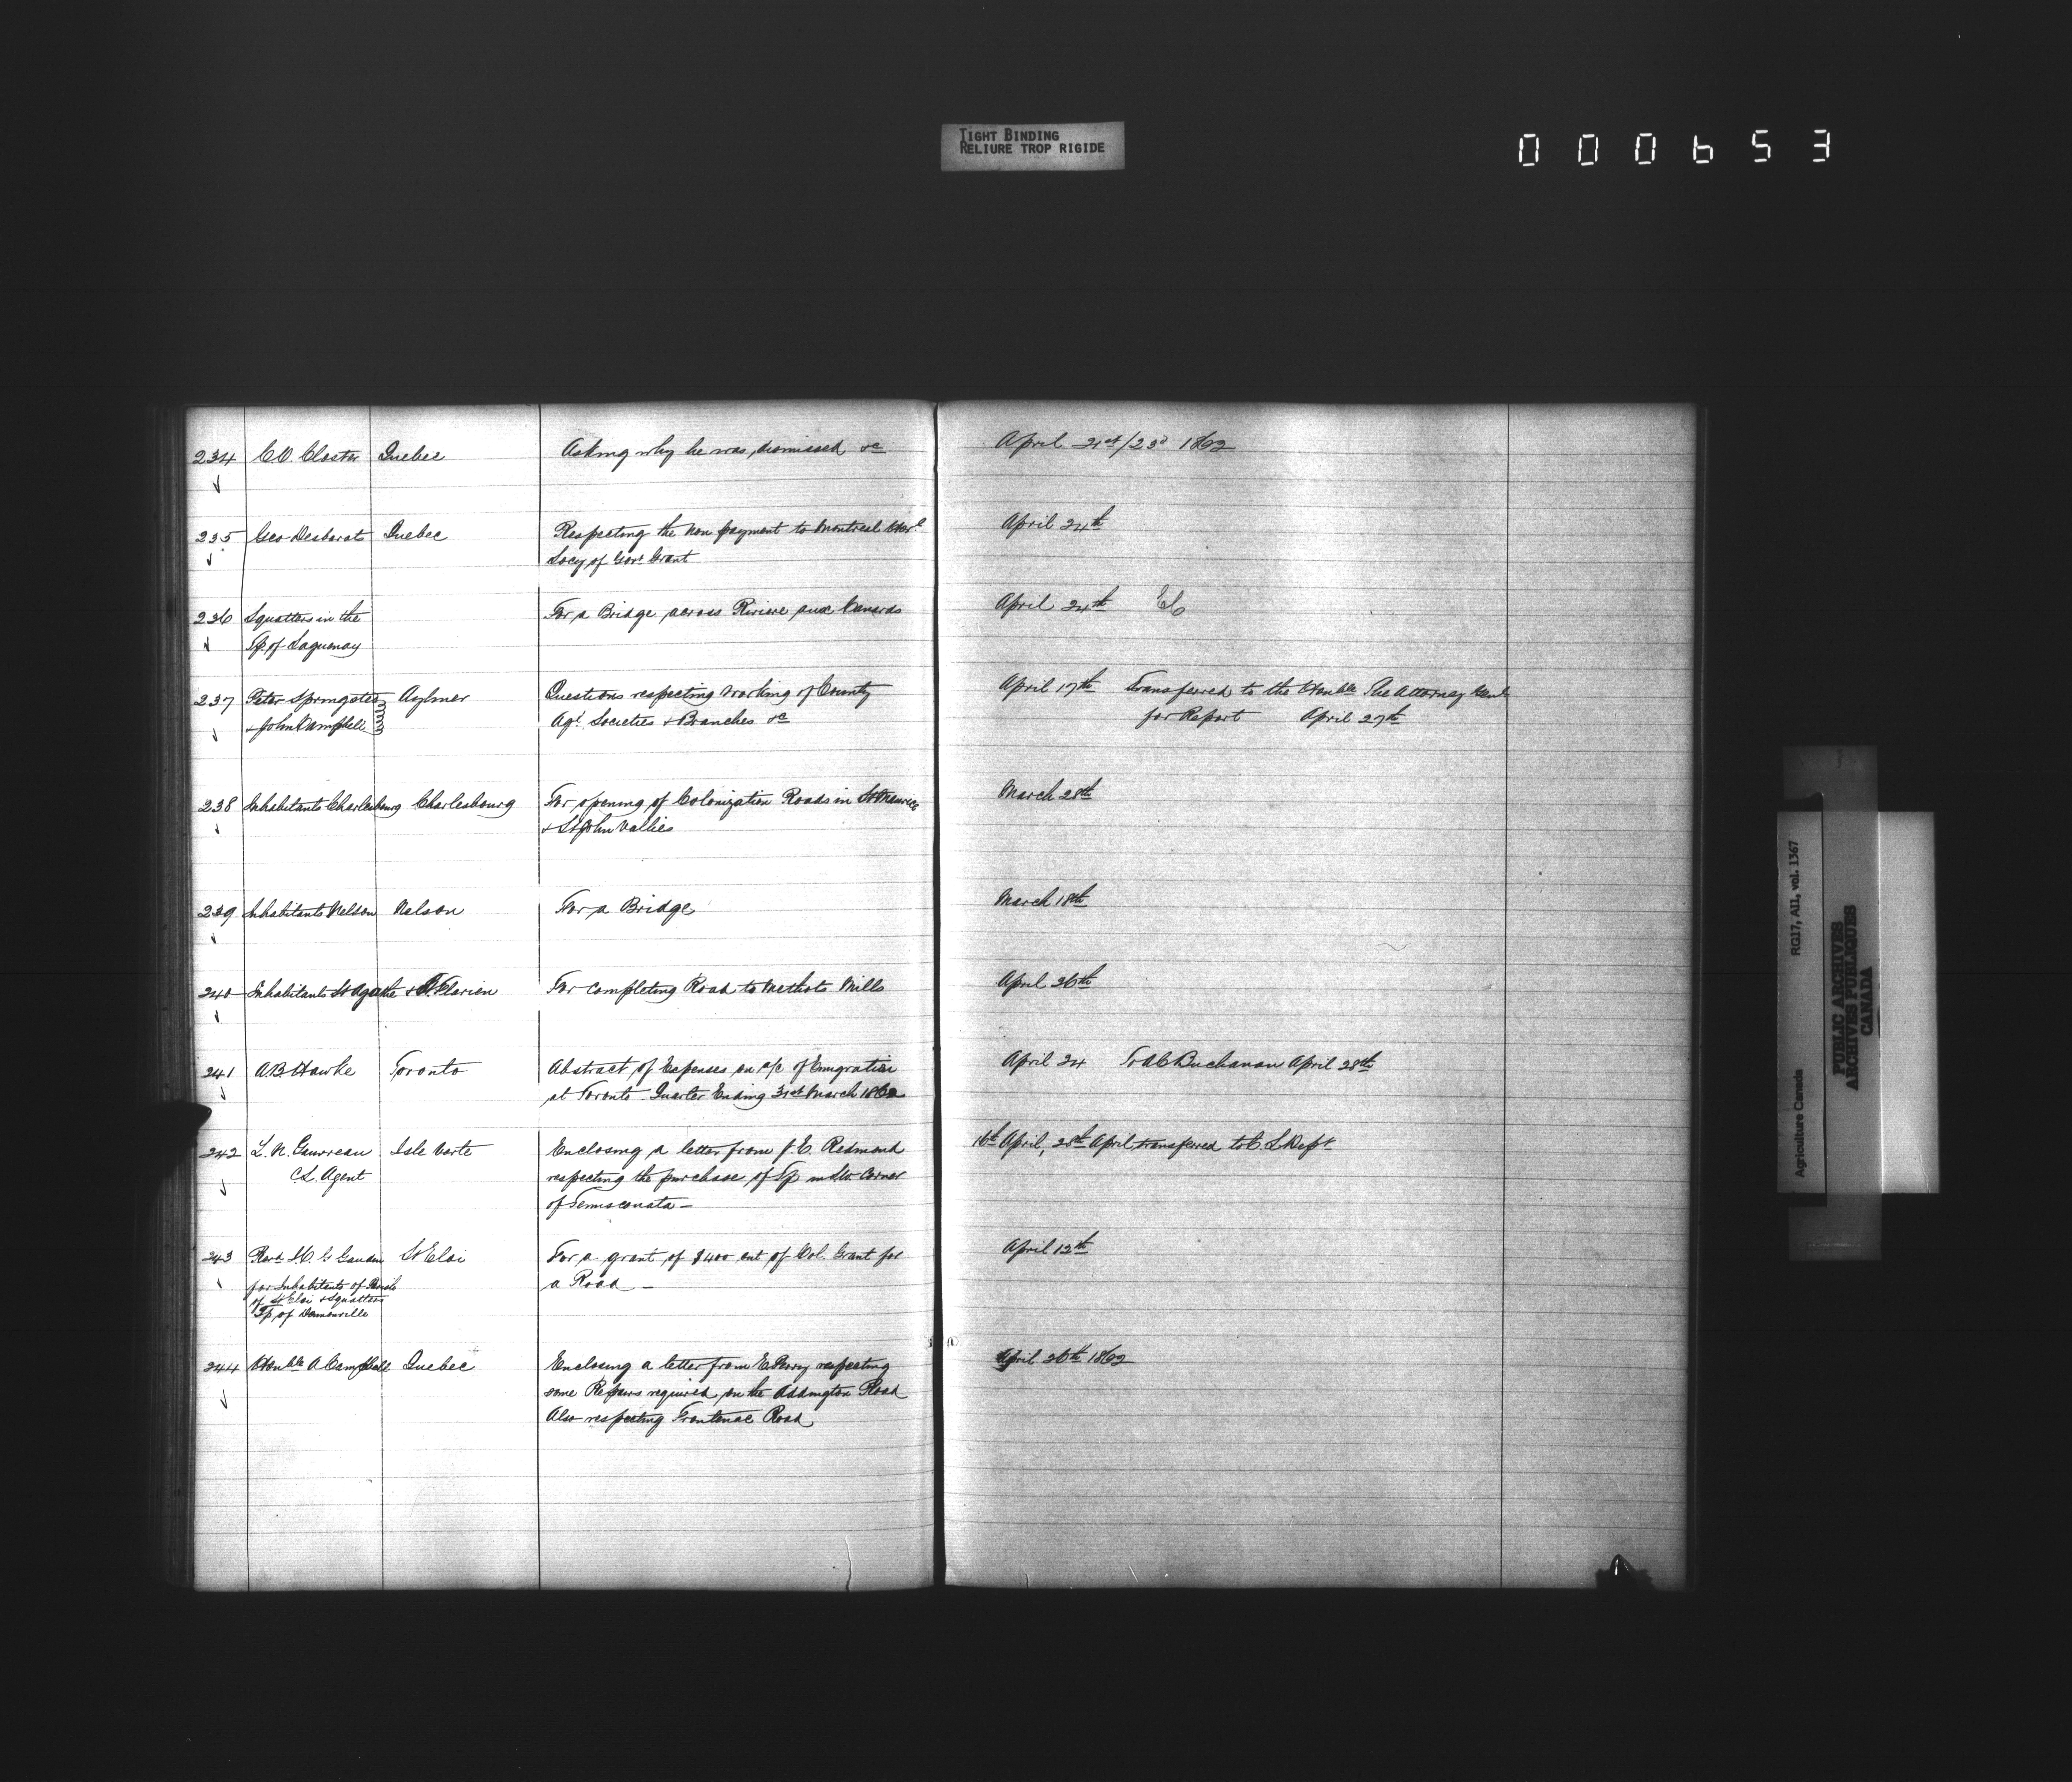 TIGHT BINDING
RELIURE TROP RIGIDE
000653
234 C.O. Closter Quebec Asking why he was dismissed &c April 21st/23d 1862
235 Geo Desbarats Quebec Respecting the non payment to Montreal Hort
Socy of Govt Grant April 24th
236 Squatters in the For a Bridge across Riviere aux Canards April 24th
Tp. of Saguenay
237 Peter Springsted Aylmer Questions respecting working of County April 17th Transferred to the Honble The Attorney Genl
& John Campbell Agl Societies & Branches &c for Report April 27th
238 Inhabitants Charlesbourg Charlesbourg For opening of Colonization Roads in St Maurice March 28th
& St John Vallies
239 Inhabitants Nelson Nelson For a Bridge March 18th
240 Inhabitants St Agathe & St. Flavien For completing Road to Methots Mills April 26th
241 A.B. Hawke Toronto Abstract of Expenses on a/c of Emigration April 24 To A C Buchanan April 28th
at Toronto Quarter Ending 31st March 1862
242 L. N. Gauvreau Isle Verte Enclosing a letter from J. E. Redmond 16th April, 28th April transferred to C. L Dept
C.L. Agent respecting the purchase of Tp in S.W. Corner
of Temisconata —
243 Revd St Eloi For a grant of $400 out of Col. Grant for April 12th
for Inhabitants of Parish a Road —
of St Eloi & Squatters
Tp. of Denonville
244 Honble A Campbell Quebec Enclosing a letter from E Perry respecting April 26th 1862
some Repairs required on the Addington Road
Also respecting Frontenac Road
Agriculture Canada RG17, AII, vol. 1367
PUBLIC ARCHIVES
ARCHIVES PUBLIQUES
CANADA